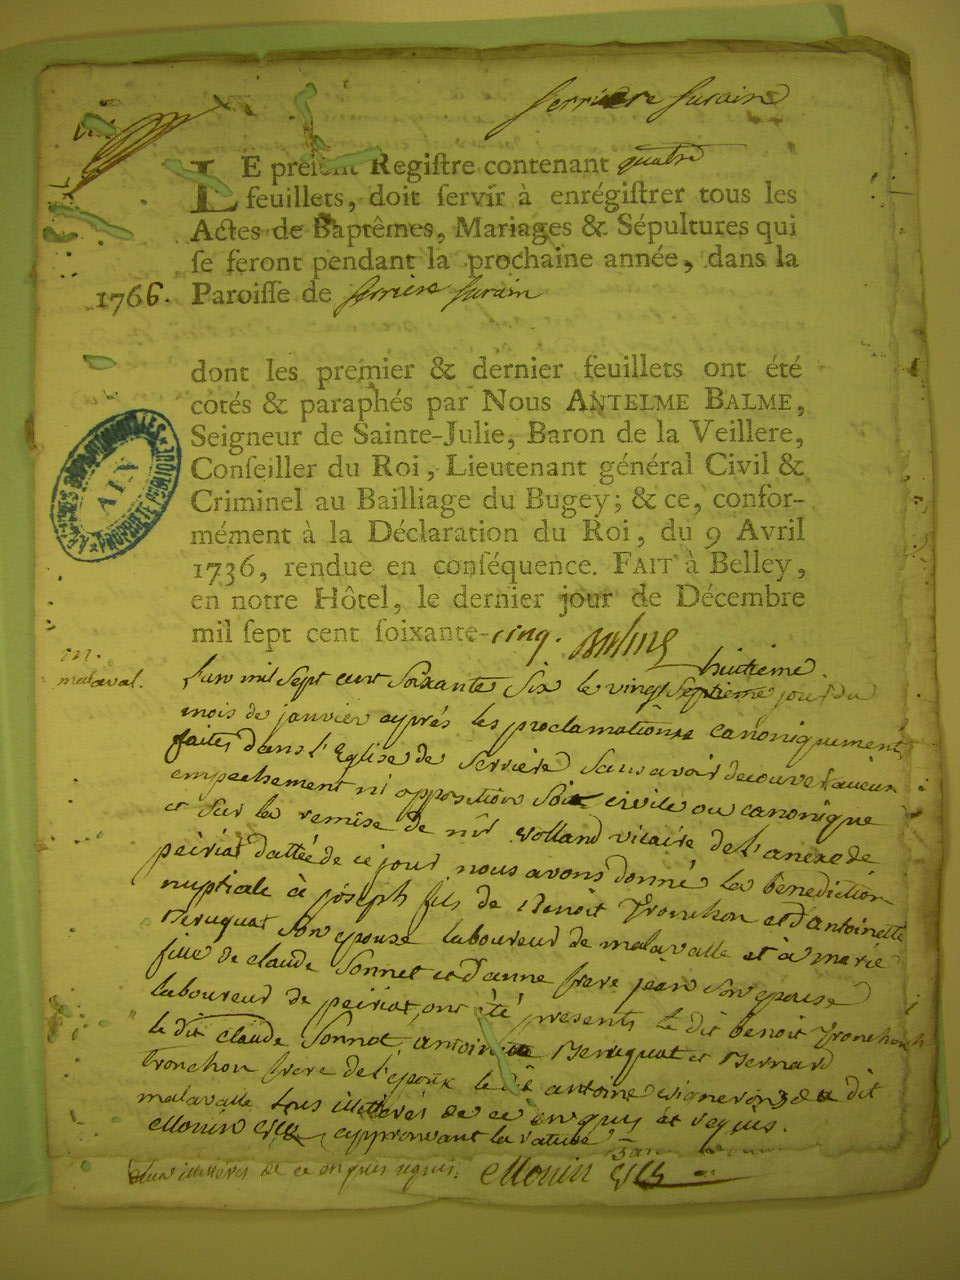 Serriere Surain
LE préſent Regiſtre contenant quatre
feuillets, doit ſervir à enrégiſtrer tous les
Actes de Baptêmes, Mariages & Sépultures qui
ſe feront pendant la prochaine année, dans la
1766. Paroiſſe de Serriere Surain
dont les premier & dernier feuillets ont été
cotés & paraphés par Nous ANTELME BALME,
Seigneur de Sainte-Julie, Baron de la Veillere,
Conſeiller du Roi, Lieutenant général Civil &
Criminel au Bailliage du Bugey; & ce, confor-
mément à la Déclaration du Roi, du 9 Avril
1736, rendue en conſéquence. FAIT à Belley,
en notre Hôtel, le dernier jour de Décembre
mil ſept cent ſoixante-cinq. Balme
ARCHIVES DEPARTEMENTALES
AIN
PROPRIETE PUBLIQUE
m.
malaval.
huitieme
L'an mil Sept cent Soixante Six le vingt Septieme jour du
mois de janvier aprés les proclamations canoniquement
faites dans l'Eglise de Serriere Sans avoir decouvert aucun
empechement ni opposition Soit civile ou canonique
et Sur la remise de mr rolland vicaire de l'anexe de
peiriat dattée de ce jour nous avons donné la benediction
nuptiale à joseph fils de Benoit Tronchon et d'antoinette
Beruquat Son epouse laboureur de malavalle et à marie
fille de claude Sonnet et d'anne frere jean Son epouse
laboureur de peiriat, ont été presents le dit benoit Tronchon
le dit claude Sonnet antoine Beruquat et Bernard
Tronchon frere de l'époux le dit antoine vigneron du dit
malavalle tous illetterés de ce enquis et requis.
Monin curé approuvant la rature
illitérés de ce enquis requis. Monin curé